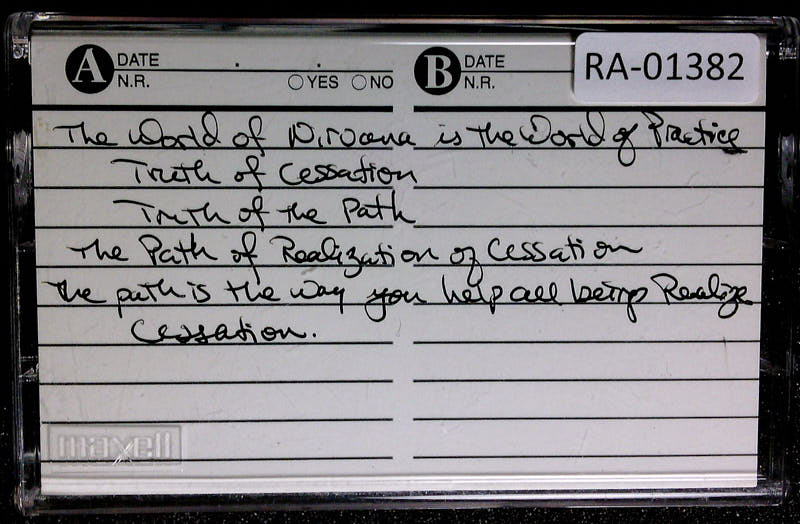 A DATE . . B DATE RA-01382
N.R. YES NO N.R.
The World of Nirvana is the World of Practice
Truth of Cessation
Truth of the Path
The Path of Realization of Cessation
The path is the way you help all beings Realize
Cessation.
maxell